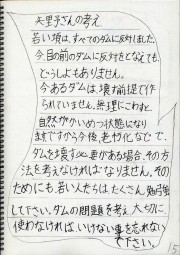 矢里子さんの考え
若い頃は、すべてのダムに反対しました。
今目の前のダムに反対をとなえても、
どうしよもありません。
今あるダムは、壊す前提で作
られていません。無理にこわすと
自然がひどい状態になり
ますですから今後、老朽化などで、
ダムを壊す必要がある場合、その方
法を考えなければなりません。その
ためにも、若い人たちはたくさん勉強
して下さい。ダムの問題を考え、大切に
使わなければいけない事を忘れない
で下さい。
15